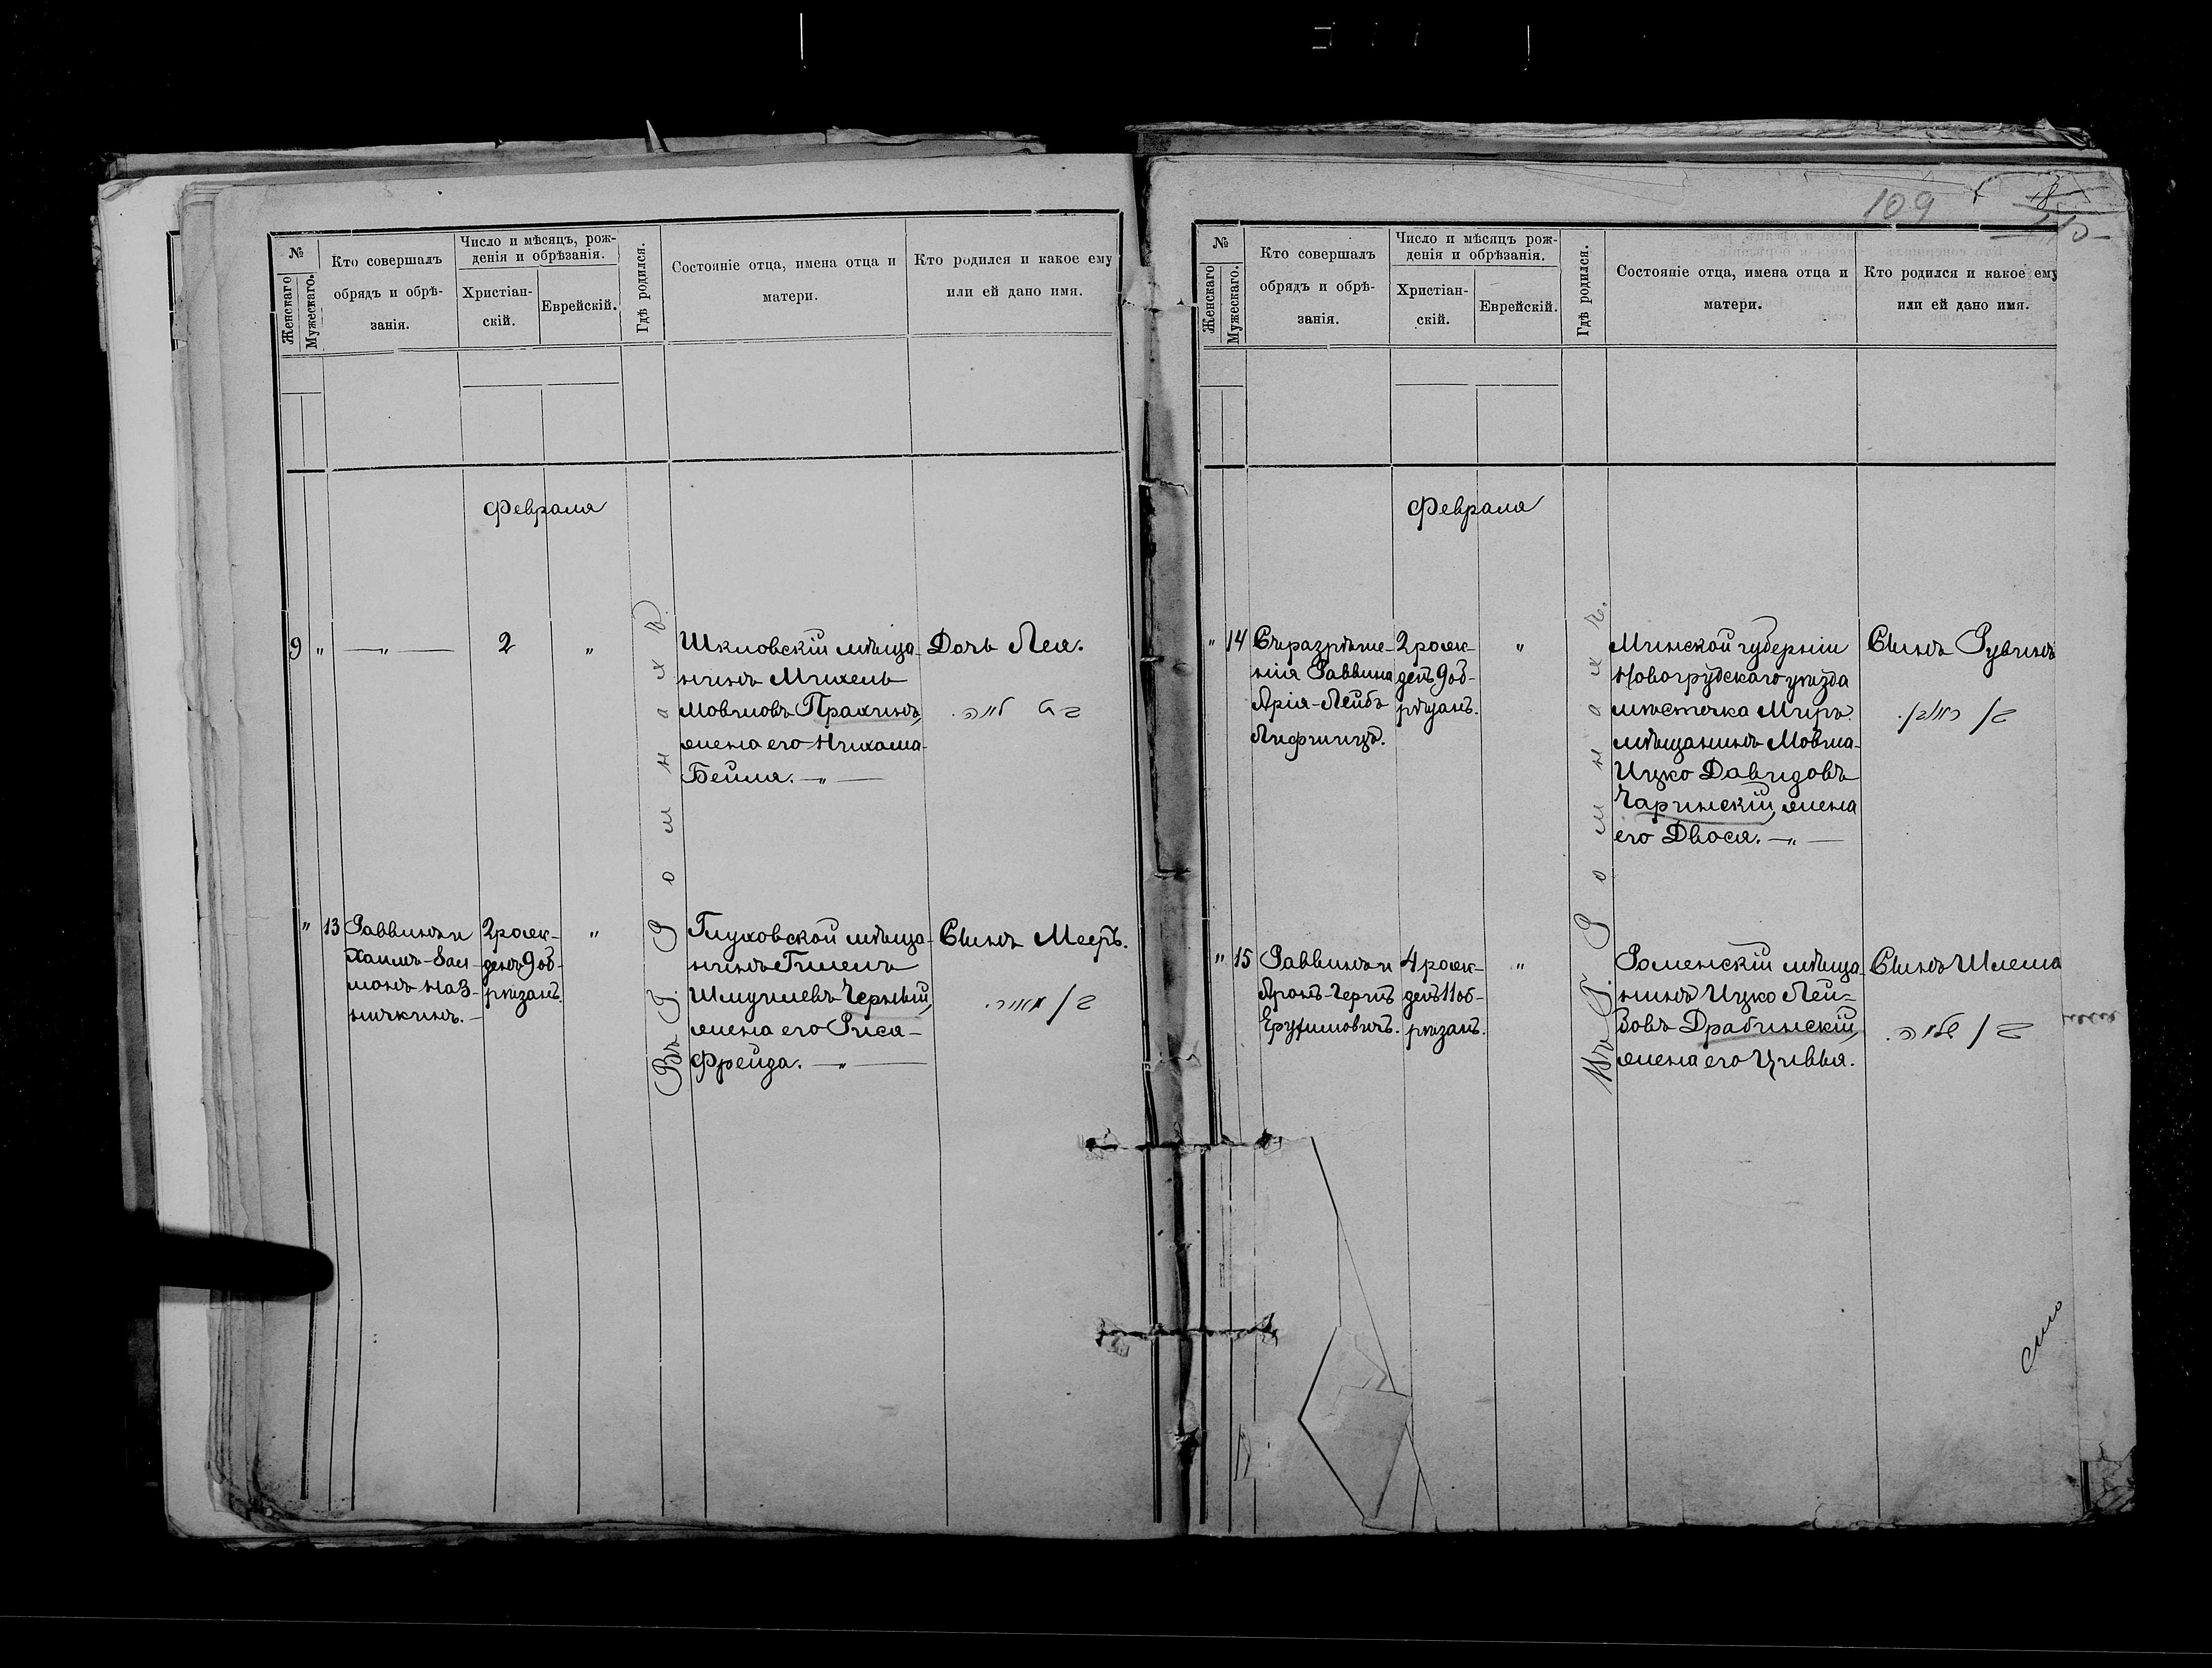 №
Женскаго
Мужескаго.
Кто совершалъ
обрядъ и обрѣ-
занія.
Число и мѣсяцъ, рож-
денія и обрѣзанія.
Христіан-
скій.
Еврейскій.
Гдѣ родился.
Состояніе отца, имена отца и
матери.
Кто родился и какое ему
или ей дано имя.
Февраля
9
"
— " —
2
"
Въ г. Ромнахъ.
Шкловскій мѣща-
нинъ Михель
Мовшовъ Прахинъ,
жена его Нихама-
Бейля. — " —
Дочь Лея.
בת לאה.
"
13
Раввинъ и
Хаимъ-Зал-
монъ Наз-
ничкинъ. —
2 рож-
денъ 9 об-
рѣзанъ.
"
Глуховской мѣща-
нинъ Гишель
Шмуилевъ Черный,
жена его Риса-
Фрейда. — " —
Сынъ Мееръ.
בן מאיר.
109
№
Женскаго
Мужескаго.
Кто совершалъ
обрядъ и обрѣ-
занія.
Число и мѣсяцъ рож-
денія и обрѣзанія.
Христіан-
скій.
Еврейскій.
Гдѣ родился.
Состояніе отца, имена отца и
матери.
Кто родился и какое ему
или ей дано имя.
Февраля
"
14
Съ разрѣше-
нія Раввина
Арія-Лейбъ
Лифшицъ.
2 рож-
денъ 9 об-
рѣзанъ.
"
Въ г. Ромнахъ.
Минской губерніи
Новогрудскаго уѣзда
мѣстечка Миръ
мѣщанинъ Мовша-
Ицко Давидовъ
Чаринскій, жена
его Двося. — " —
Сынъ Рувинъ
בן ראובן.
"
15
Раввинъ и
Аронъ-Герцъ
Ерухимовичъ.
4 рож-
денъ 11 об-
рѣзанъ.
"
Роменскій мѣща-
нинъ Ицко Лей-
зовъ Драбинскій,
жена его Цивья.
Сынъ Шлема
בן שלמה.